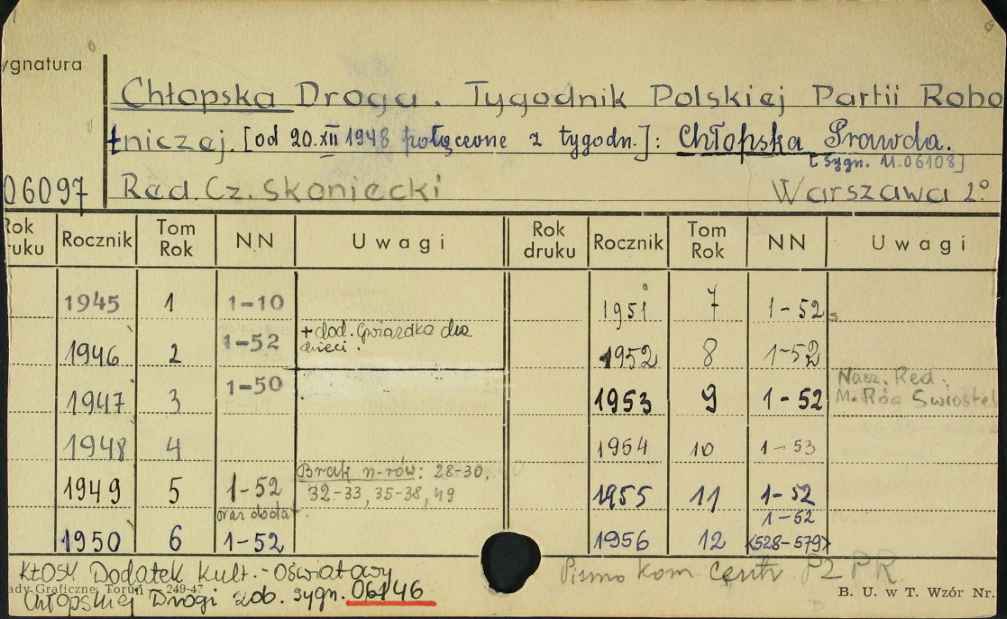 ygnatura
Chłopska Droga. Tygodnik Polskiej Partii Robo
tniczej. [od 20.XII 1948 połączone z tygodn.]: Chłopska Prawda.
[Sygn. U.06108]
06097 Red. Cz. Skoniecki Warszawa 2°
Rok druku Rocznik Tom Rok NN Uwagi Rok druku Rocznik Tom Rok NN Uwagi
1945 1 1-10 1951 7 1-52
1946 2 1-52 + dod. Gwiazdka dla dzieci. 1952 8 1-52
1947 3 1-50 1953 9 1-52 Nacz. Red. M. Róg Świostek
1948 4 1954 10 1-53
1949 5 1-52 Brak n-rów: 28-30, 32-33, 35-38, 49 1955 11 1-52
oraz dodat.
1950 6 1-52 1956 12 1-52 <528-579>
Kłosy Dodatek Kult.-Oświatowy Pismo Kom Centr PZPR
ady Graficzne, Toruń 249-47
Chłopskiej Drogi zob. sygn. 06146 B. U. w T. Wzór Nr.